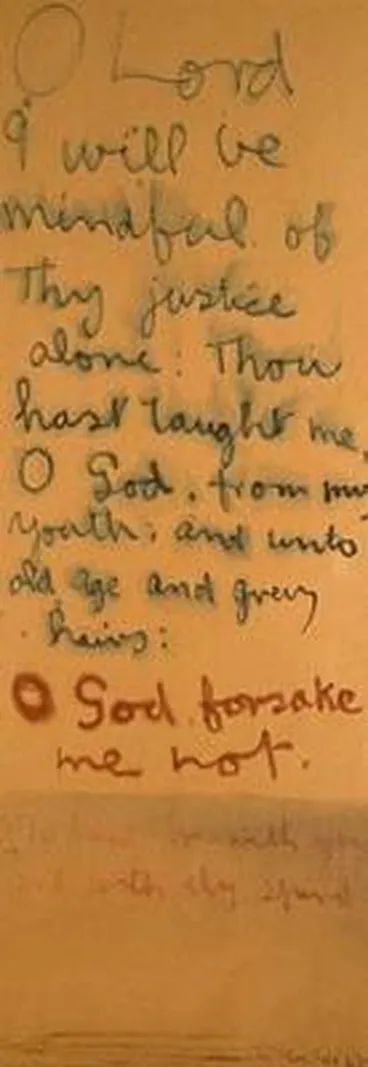 O Lord
I will be
mindful of
Thy justice
alone: Thou
hast taught me,
O God, from my
youth: and unto
old age and grey
hairs:
O God forsake
me not.
with you
with thy spirit